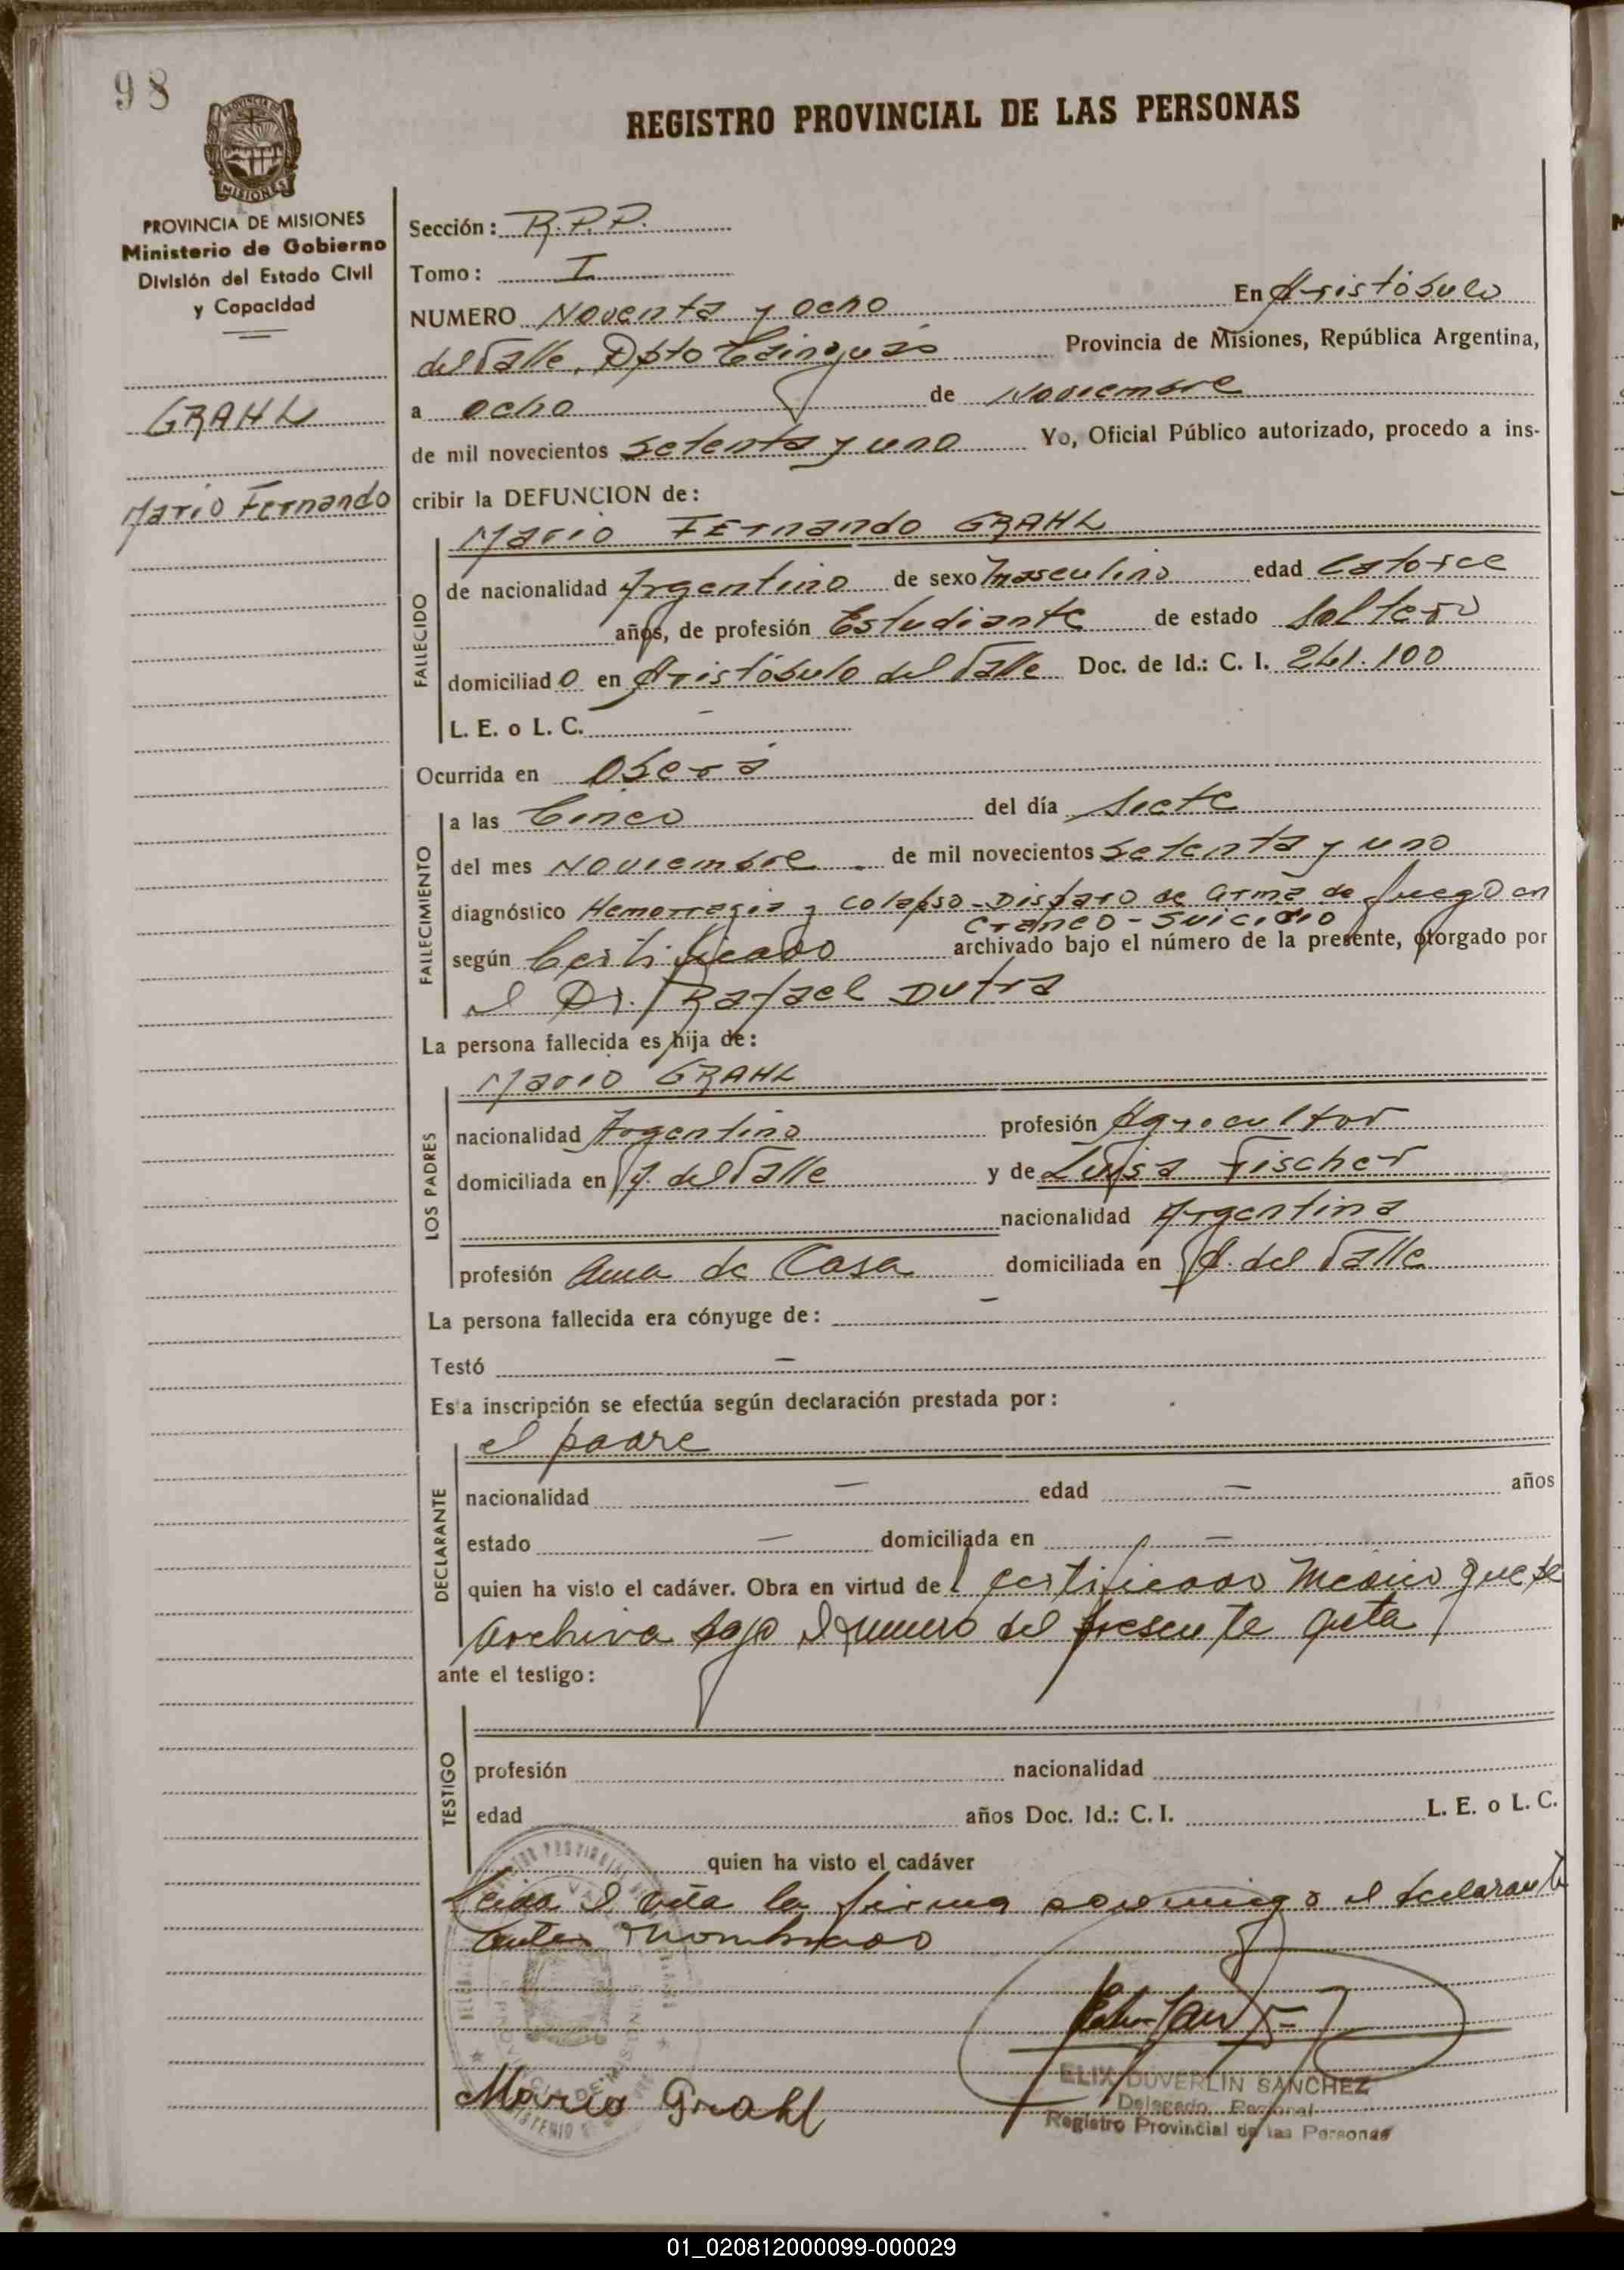 98
REGISTRO PROVINCIAL DE LAS PERSONAS
PROVINCIA DE
MISIONES
PROVINCIA DE MISIONES
Ministerio de Gobierno
División del Estado Civil
y Capacidad
GRAHL
Mario Fernando
Sección: R.P.P.
Tomo: I
NUMERO Noventa y ocho En Aristóbulo
del Valle, Dpto Cainguás Provincia de Misiones, República Argentina,
a ocho de Noviembre
de mil novecientos setenta y uno Yo, Oficial Público autorizado, procedo a ins-
cribir la DEFUNCION de:
Mario Fernando GRAHL
FALLECIDO
de nacionalidad Argentino de sexo masculino edad catorce
años, de profesión Estudiante de estado soltero
domiciliado en Aristóbulo del Valle Doc. de Id.: C. I. 241.100
L. E. o L. C. -
Ocurrida en Oberá
FALLECIMIENTO
a las Cinco del día siete
del mes Noviembre de mil novecientos setenta y uno
diagnóstico Hemorragia y colapso - Disparo de arma de fuego en
craneo - suicidio
según Certificado archivado bajo el número de la presente, otorgado por
el Dr. Rafael Dutra
La persona fallecida es hija de:
Mario GRAHL
LOS PADRES
nacionalidad Argentino profesión Agricultor
domiciliada en A. del Valle y de Luisa Fischer
nacionalidad Argentina
profesión Ama de Casa domiciliada en A. del Valle
La persona fallecida era cónyuge de: -
Testó -
Esta inscripción se efectúa según declaración prestada por:
el padre
DECLARANTE
nacionalidad - edad - años
estado - domiciliada en -
quien ha visto el cadáver. Obra en virtud del certificado médico que se
archiva bajo el numero del presente acta
ante el testigo:
TESTIGO
profesión nacionalidad
edad años Doc. Id.: C. I. L. E. o L. C.
quien ha visto el cadáver
Leida el acta la firma conmigo el declarante
antes nombrado
Mario Grahl
ELIX DUVERLIN SANCHEZ
Delegado
Registro Provincial de las Personas
01_020812000099-000029